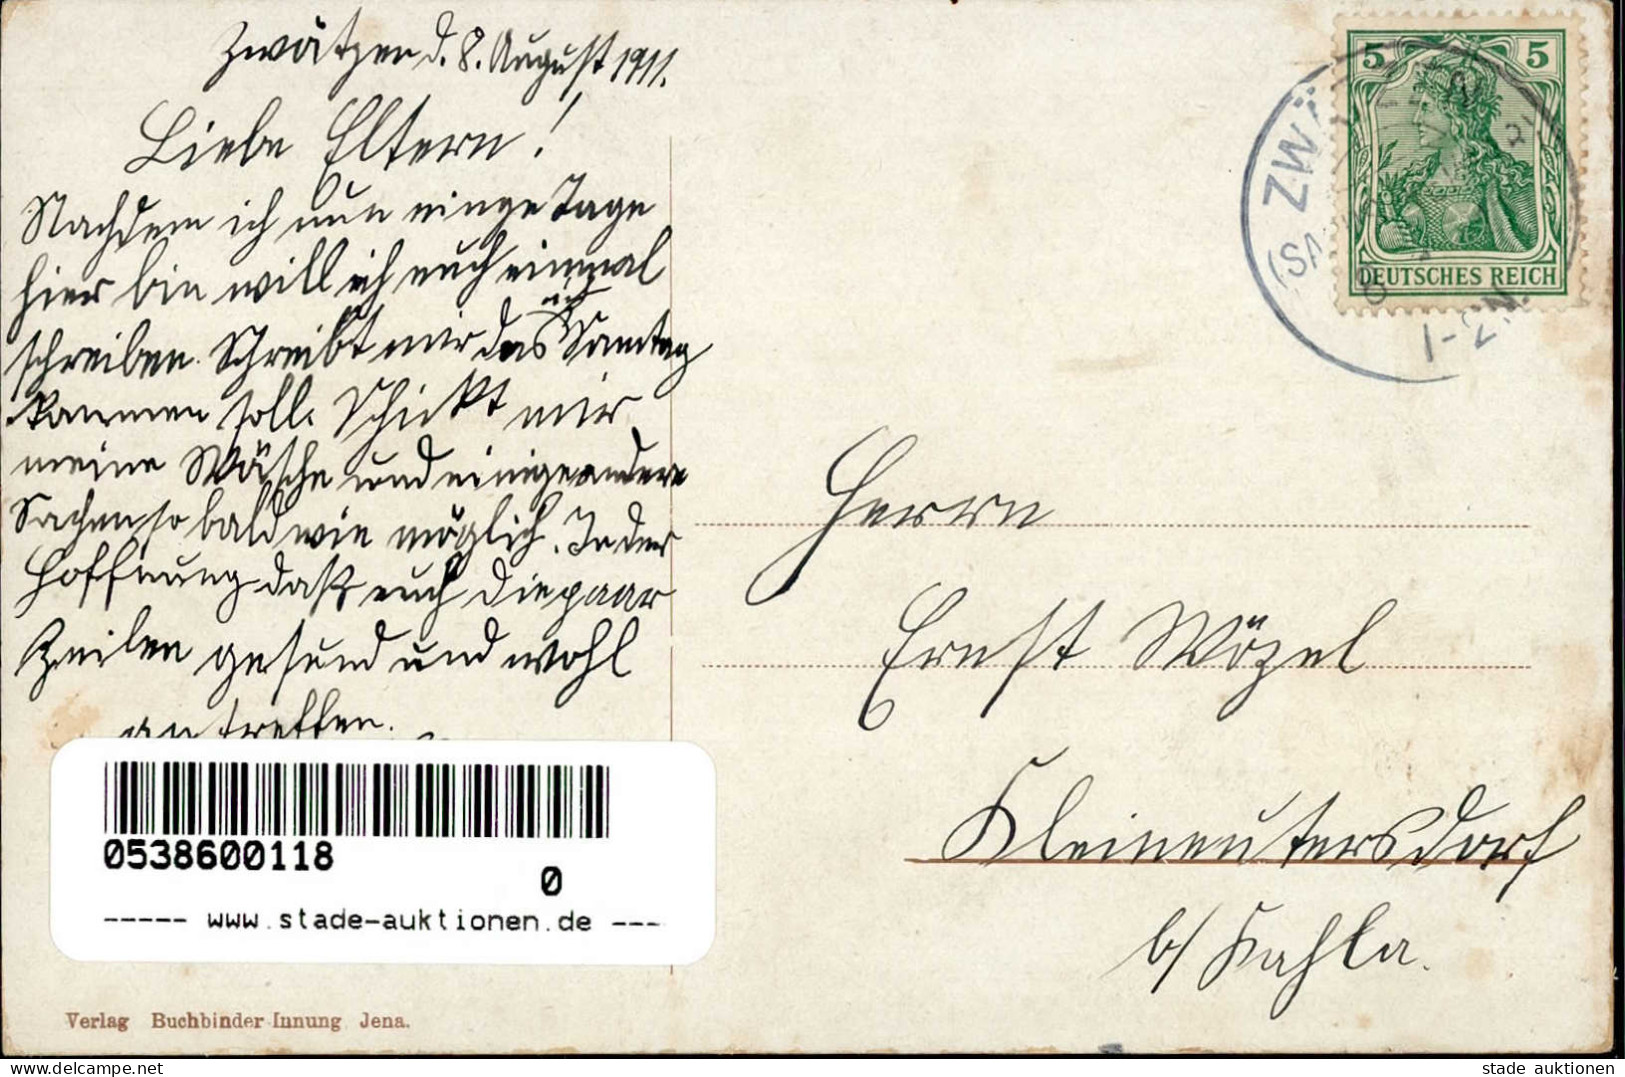 Zwätzen d. 8. August 1911.
Liebe Eltern!
Nachdem ich nun einge Tage
hier bin will ich euch einmal
schreiben. Schreibt mir das
ich
Sonntag
kommen soll. Schickt mir
meine Wäsche und einige andere
Sachen so bald wie möglich. In der
Hoffnung daß euch die paar
Zeilen gesund und wohl
an treffen.
0538600118
0
----- www.stade-auktionen.de ---
Verlag Buchbinder-Innung Jena.
5 5
DEUTSCHES REICH
ZWÄ
1-2 N.
Herrn
Ernst Wözel
Kleineutersdorf
b/ Kahla.
www.delcampe.net
stade auktionen